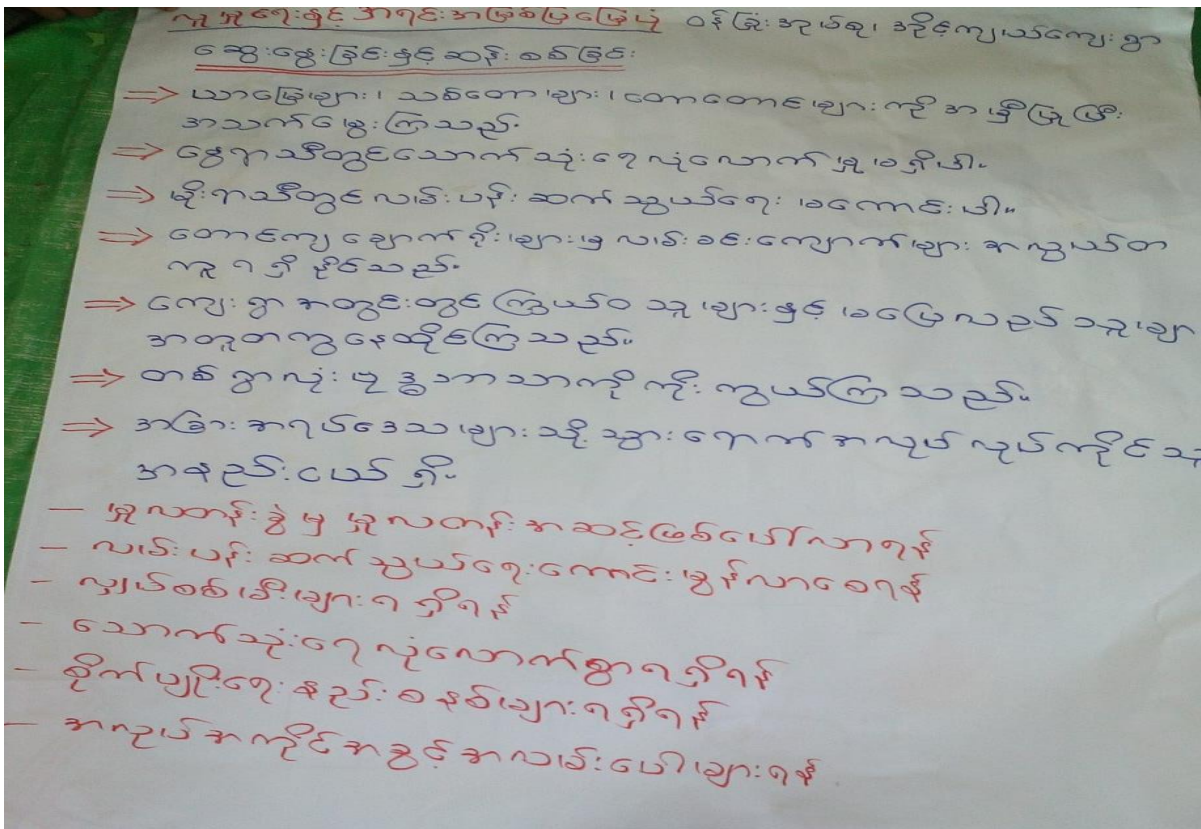 လူမှုရေးနှင့် အရင်းအမြစ်ပြမြေပုံ ဝန်ခြုံးအုပ်စု၊ ကျေးရွာ
ဆွေးနွေးခြင်းနှင့်ဆန်းစစ်ခြင်း
⇒ ယာမြေများ၊ သစ်တောများ၊ တောတောင်များကို အမှီပြုပြီး
အသက်မွေးကြသည်။
⇒ နွေရာသီတွင်သောက်သုံးရေလုံလောက်မှုမရှိပါ။
⇒ မိုးရာသီတွင်လမ်းပန်းဆက်သွယ်ရေး မကောင်းပါ။
⇒ တောင်ကျချောက်ရိုးများမှ လမ်းခင်းကျောက်များ အလွယ်တ
ကူရရှိနိုင်သည်။
⇒ ကျေးရွာအတွင်းတွင်ကြွယ်ဝသူများနှင့်မပြေလည်သူများ
အတူတကွနေထိုင်ကြသည်။
⇒ တစ်ရွာလုံးဗုဒ္ဓဘာသာကိုကိုးကွယ်ကြသည်။
⇒ အခြားအရပ်ဒေသများသို့သွားရောက်အလုပ်လုပ်ကိုင်သူ
အနည်းငယ်ရှိ။
- မူလတန်းခွဲမှမူလတန်းအဆင့်ဖြစ်ပေါ်လာရန်
- လမ်းပန်းဆက်သွယ်ရေးကောင်းမွန်လာစေရန်
- လျှပ်စစ်မီးများရရှိရန်
- သောက်သုံးရေလုံလောက်စွာရရှိရန်
- စိုက်ပျိုးရေးနည်းစနစ်များရရှိရန်
- အလုပ်အကိုင်အခွင့်အလမ်းပေါများရန်